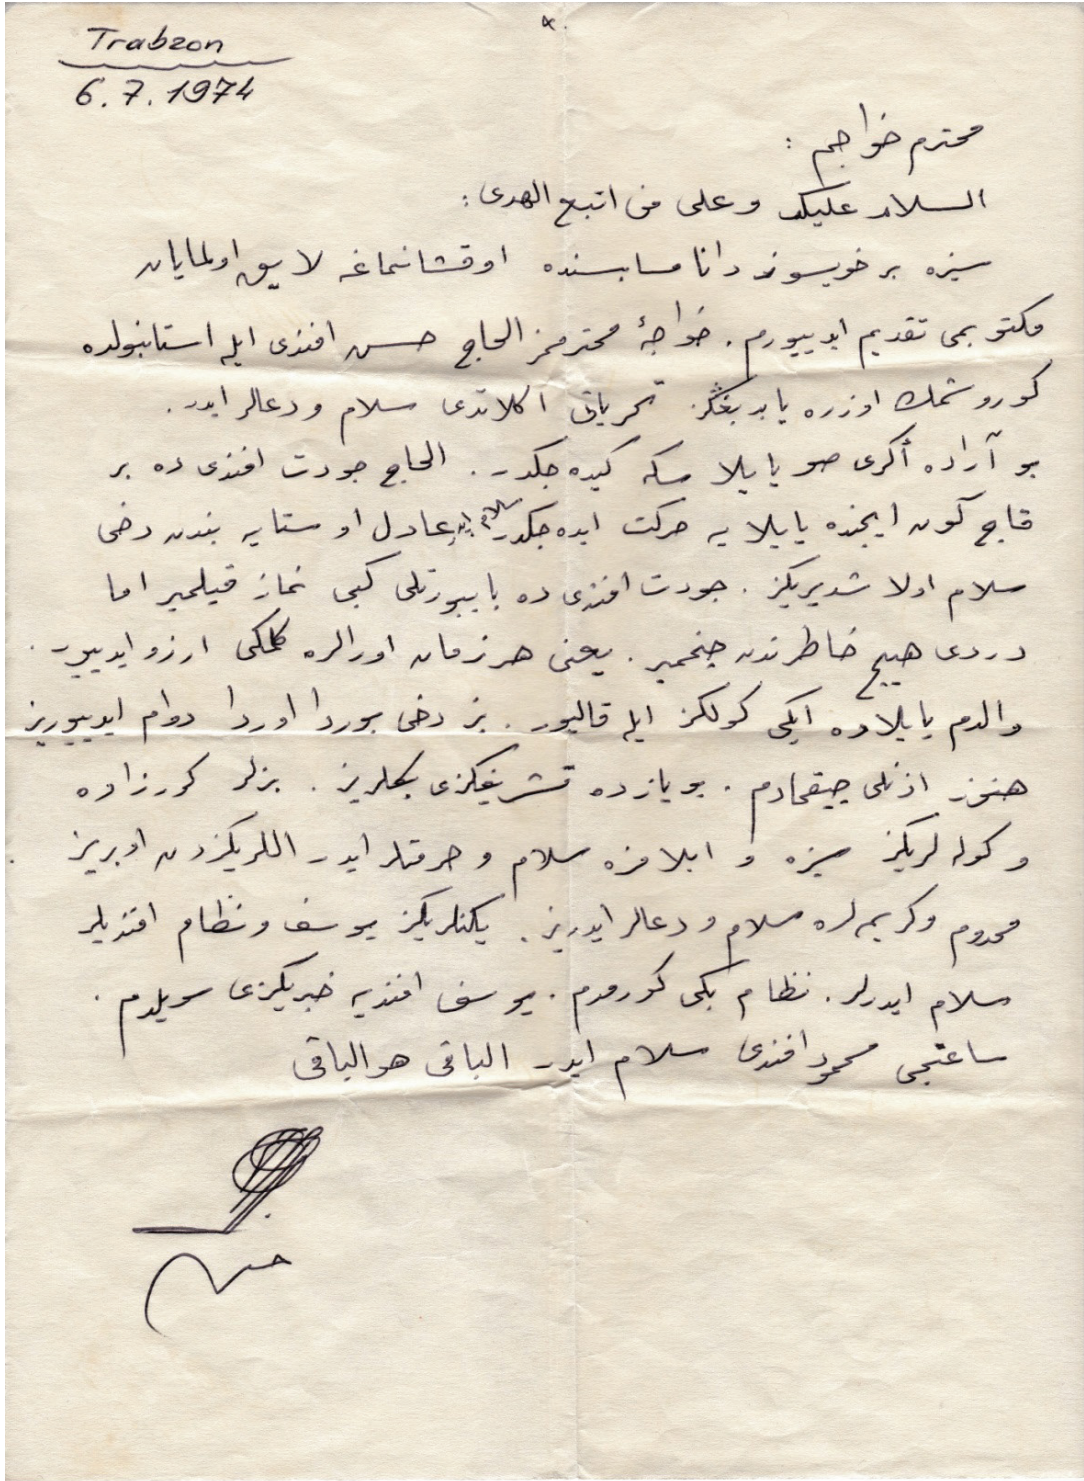 Trabzon
6.7.1974
محترم خواجم :
السلام عليكم وعلى من اتبع الهدى :
سزه بر خويسوز دانا مسابسنده اوقشانماغه لايق اولمايان
مكتوبمى تقديم ايدييورم . خواجۀ محترممز الحاج حسن افندى ايله استانبولده
كوروشمك اوزره يابديغڭز تحرياتى آكلاتدى سلام و دعالر ايدر .
بو آراده أكرى صو يايلا سنه كيده جكدر . الحاج جودت افندى ده بر
قاچ كون ايچنده يايلا يه حركت ايده جكدر سلام ايدر عادل اوستايه بندن دخى
سلام اولاشديريكز . جودت افندى ده بايبورتلى كبى نماز قيلمير اما
دردى هيچ خاطرندن چيخمير . يعنى هر زمان اورالره كلمكى ارزو ايدييور .
والدم يايلاده ايكى كولكز ايله قاليور . بز دخى بوردا اوردا دوام ايدييوريز
هنوز اذنلى چيقمادم . بو يازده تشريفكزى بكلريز . بزلر كورزاده
و كوله لريكز سزه و ابلامزه سلام و حرمتلر ايدر اللريكزدن اوپريز .
مخدوم وكريمه لره سلام و دعالر ايدريز . يكنلريكز يوسف و نظام افنديلر
سلام ايدرلر . نظام بكى كورمدم . يوسف افنديه خبريكزى سويلدم .
ساعتجى محمود افندى سلام ايدر الباقى هو الباقى
حسن